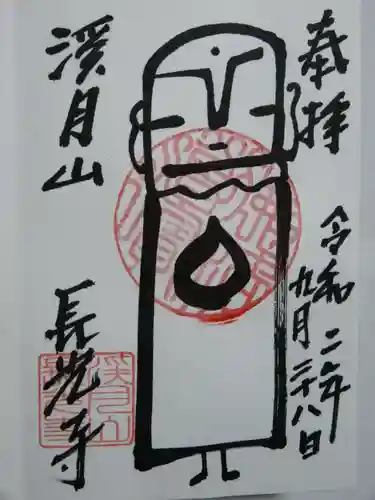 奉拝
令和二年
九月二十八日
渓月山
長光寺